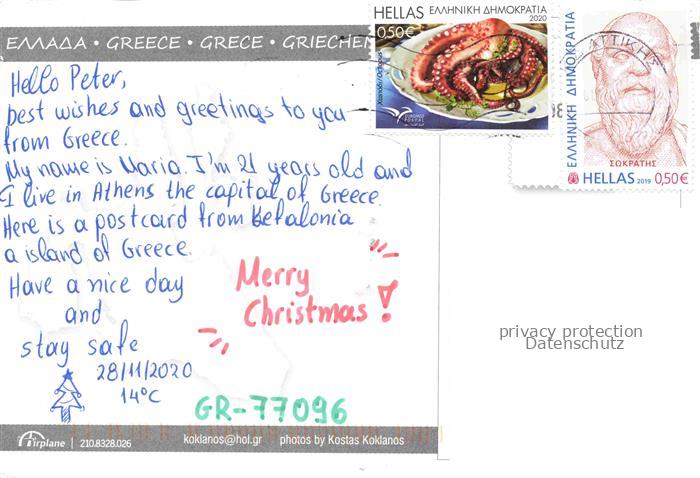 ΕΛΛΑΔΑ • GREECE • GRECE • GRIECHEN
Hello Peter,
best wishes and greetings to you
from Greece.
My name is Maria. I'm 21 years old and
I live in Athens the capital of Greece.
Here is a postcard from Kefalonia
a island of Greece.
Have a nice day
and
stay safe
28/11/2020
14°C
Merry
Christmas!
GR-77096
Airplane | 210.8328.026 koklanos@hol.gr photos by Kostas Koklanos
HELLAS ΕΛΛΗΝΙΚΗ ΔΗΜΟΚΡΑΤΙΑ
2020
0,50€
Χταπόδι/Octopus
EUROMED
POSTAL
ΑΤΤΙΚΗΣ
ΕΛΛΗΝΙΚΗ ΔΗΜΟΚΡΑΤΙΑ
ΣΩΚΡΑΤΗΣ
HELLAS 2019 0,50€
privacy protection
Datenschutz